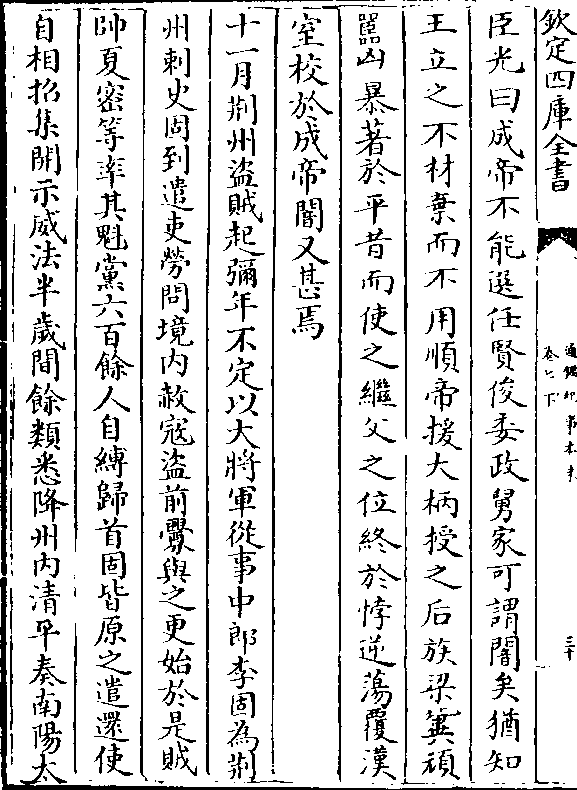 欽定四庫全書
通鑑紀事本末
卷七下
三十
臣光曰成帝不能選任賢俊委政舅家可謂闇矣猶知
王立之不材棄而不用順帝援大柄授之后族梁冀頑
嚚凶暴著於平昔而使之繼父之位終於悖逆蕩覆漢
室校於成帝闇又甚焉
十一月荆州盜賊起彌年不定以大將軍從事中郎李固為荆
州刺史固到遣吏勞問境內赦寇盜前釁與之更始於是賊
帥夏密等率其魁黨六百餘人自縛歸首固皆原之遣還使
自相招集開示威法半歲間餘類悉降州內清平奏南陽太